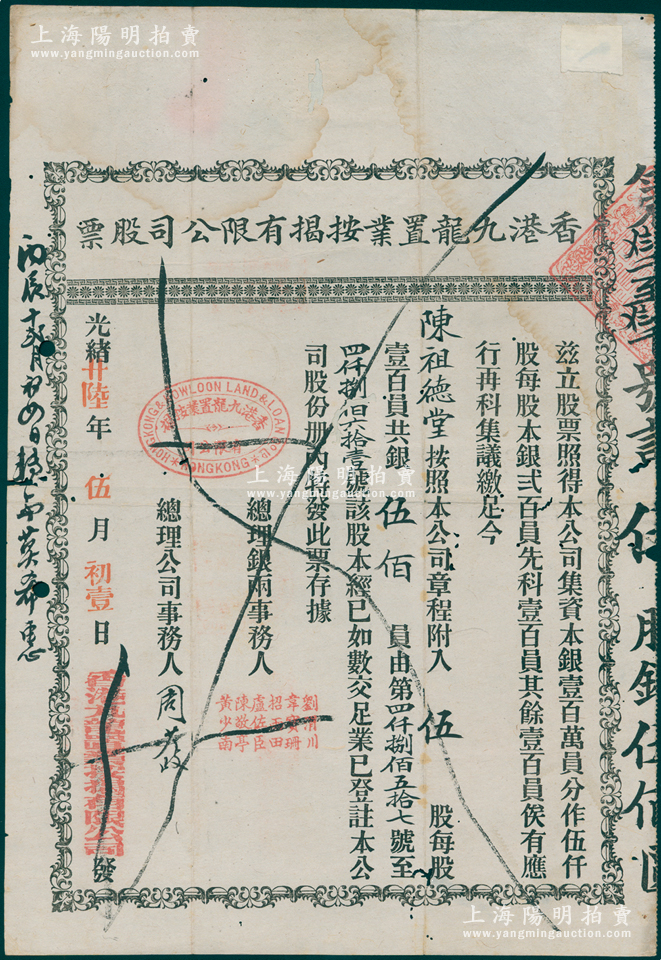 上海陽明拍賣
www.yangmingauction.com
香港九龍置業按揭有限公司股票
茲立股票照得本公司集資本銀壹百萬員分作伍仟
股每股本銀弍百員先科壹百員其餘壹百員俟有應
行再科集議繳足今
陳祖德堂按照本公司章程附入 伍 股每股
壹百員共銀 伍佰 員由第四仟捌佰五拾七號至
四仟捌佰六拾壹號該股本經已如數交足業已登註本公
司股份册內 發此票存據
總理銀兩事務人
劉渭川
韋寶珊
招雨田
盧佐臣
陳敬亭
黃少南
總理公司事務人 周
光緒廿陸年 伍月 初壹日
香港九龍置業按揭有限公司
發
HONGKONG & KOWLOON LAND & LOAN Co Ld
香港九龍置業按揭
有限公司
HONGKONG
丙辰十 月初四日
上海陽明拍賣
www.yangmingauction.com
上海陽明拍賣
www.yangmingauction.com